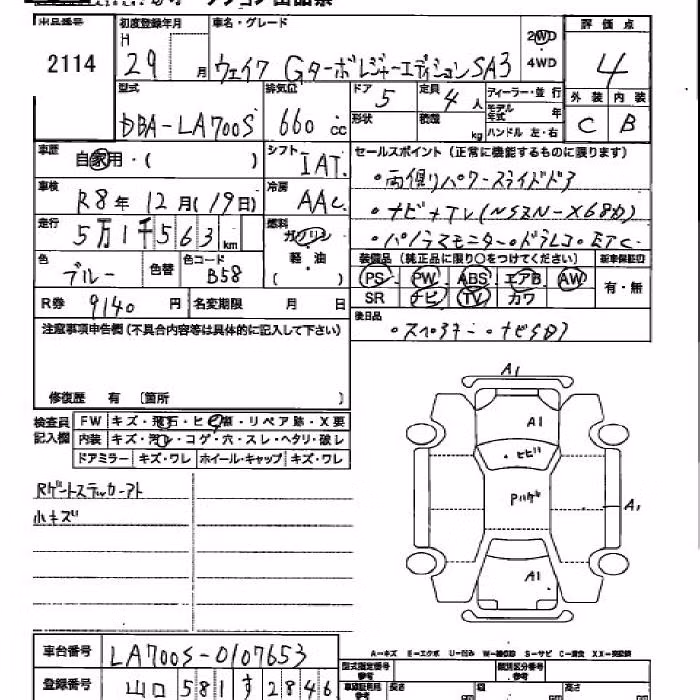 オークション出品票
出品番号 初度登録年月 車名・グレード 評価点
2114 H 29 月 ウェイク Gターボレジャーエディション SA3 2WD 4WD 4
型式 排気量 ドア 5 定員 4 人 ディーラー・並行 外装 内装
DBA-LA700S 660 cc 形状 積載 kg モデル年式 年 C B
ハンドル 左・右
車歴 自家用・( ) シフト IAT. セールスポイント (正常に機能するものに限ります)
車検 R8年 12月 (19日) 冷房 AAC ・両側パワースライドドア
・ナビ+TV (NSZN-X68D)
走行 5万1千563 km 燃料 ガソリン ・パノラマモニター・ドラレコ・ETC
軽・油 ( )
色 ブルー 色替 色コード B58 装備品 (純正品に限り○をつけてください) 新車保証印
PS PW ABS エアB AW 有・無
R券 9140 円 名変期限 月 日 SR ナビ TV カワ
注意事項申告欄 (不具合内容等は具体的に記入して下さい) 後日品
・スペアキー・ナビSD
修復歴 有 〔箇所 〕
検査員記入欄 FW キズ・飛石・ヒビ割・リペア跡・X要
内装 キズ・汚レ・コゲ・穴・スレ・ヘタリ・破レ
ドアミラー キズ・ワレ ホイール・キャップ キズ・ワレ
Rゲートステッカーアト
小キズ
A1
A1
・ヒビ
Pハゲ
A1
A1
A-キズ E-エクボ U-凹み W-補修跡 S-サビ C-腐食 XX-交換済
車台番号 LA700S-0107653 型式指定番号 参考 類別区分番号 参考
登録番号 山口 581 す 2846 車検証有効 参考 長さ 幅 高さ